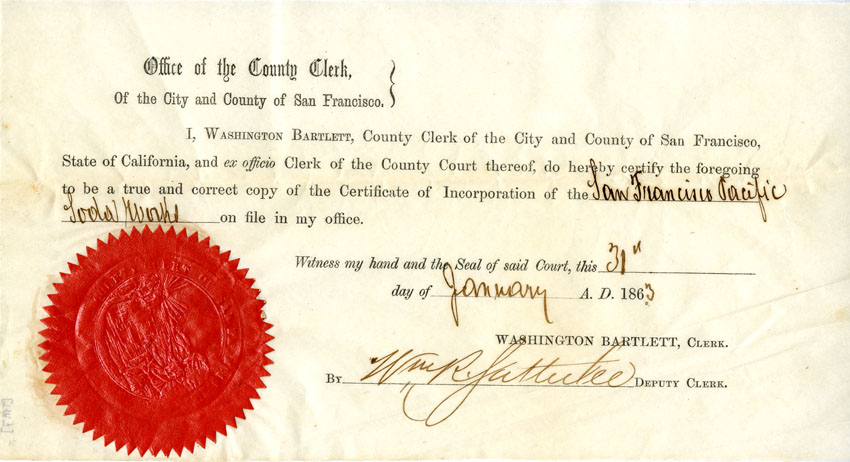 Office of the County Clerk,
Of the City and County of San Francisco. }
I, WASHINGTON BARTLETT, County Clerk of the City and County of San Francisco,
State of California, and ex officio Clerk of the County Court thereof, do hereby certify the foregoing
to be a true and correct copy of the Certificate of Incorporation of the San Francisco Pacific
Soda Works on file in my office.
Witness my hand and the Seal of said Court, this 31st
day of January A. D. 1863
WASHINGTON BARTLETT, CLERK.
BY Wm R. Satterlee DEPUTY CLERK.